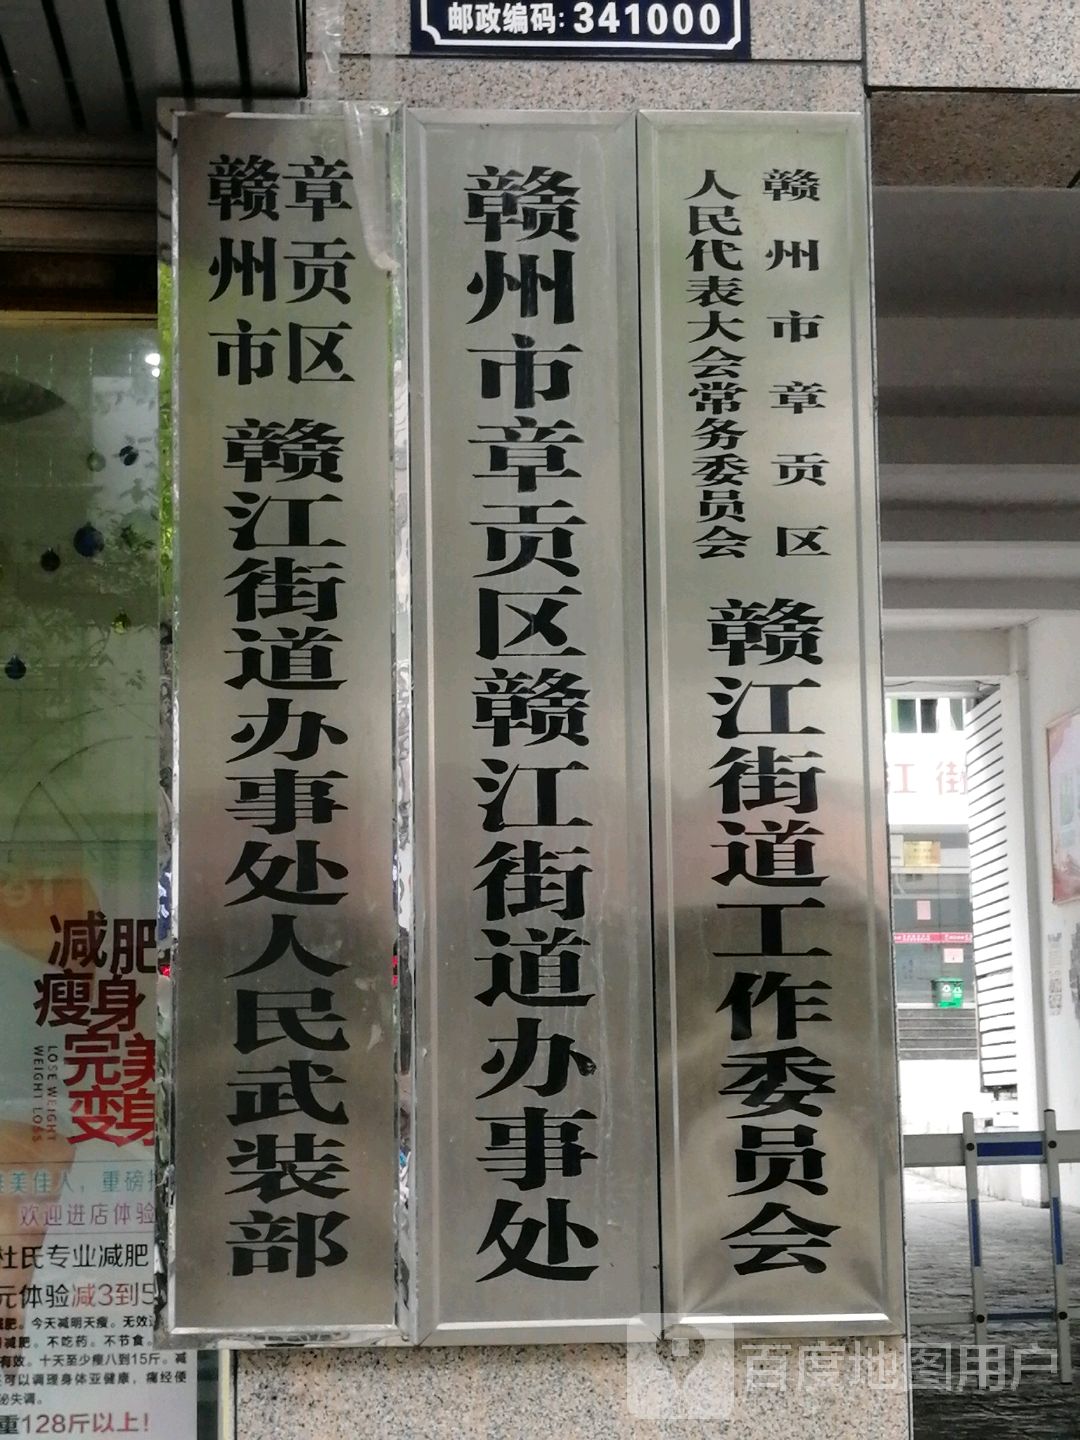 邮政编码:341000
赣州市章贡区
人民代表大会常务委员会
赣江街道工作委员会
赣州市章贡区赣江街道办事处
赣州市
章贡区
赣江街道办事处人民武装部
江街
减肥
瘦身
完美
变身
LOSE WEIGHT
WEIGHT LOSS
美佳人，重磅
欢迎进店体验
杜氏专业减肥
元体验减3到5
肥。今天减明天瘦。无效
减肥。不吃药。不节食。
有效。十天至少瘦八到15斤。减
可以调理身体亚健康，痛经便
泌失调。
重128斤以上！
百度地图用户